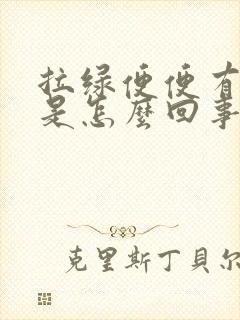 拉绿便便有
是怎麼回事
克里斯丁貝尔